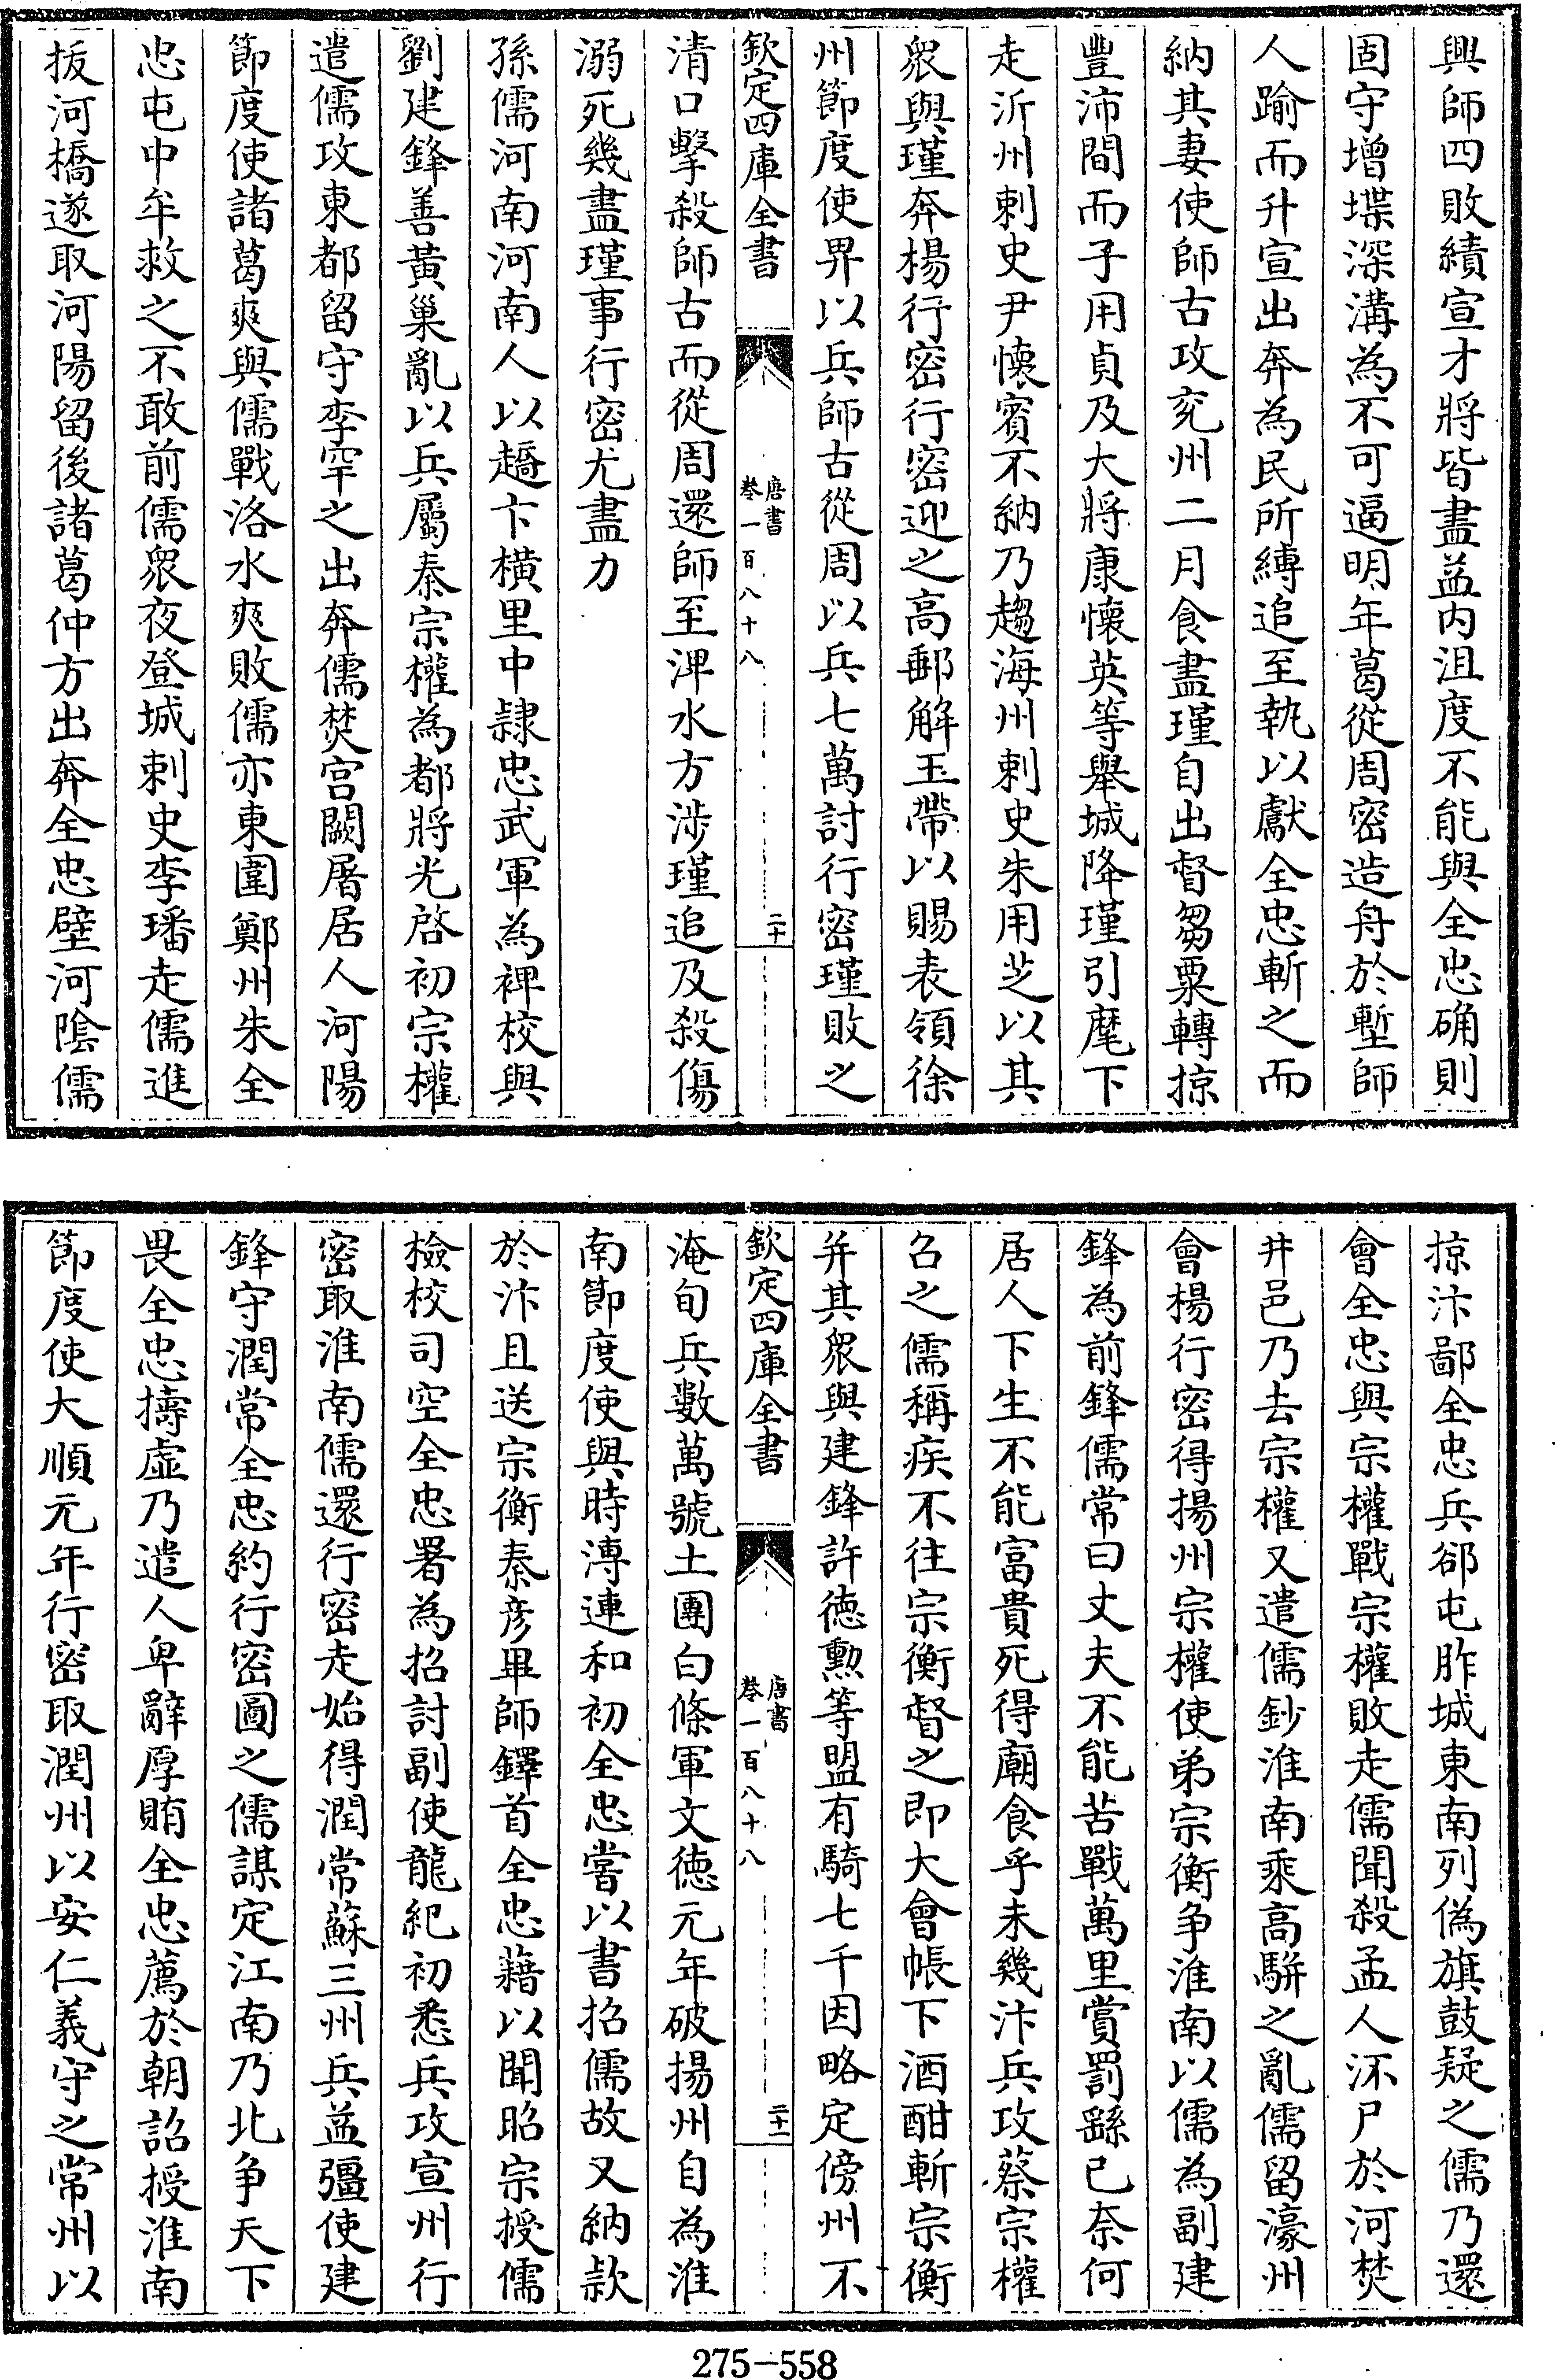 興師四敗績宣才將皆盡益内沮度不能與全忠确則
固守增堞深溝為不可逼明年葛從周密造舟於塹師
人踰而升宣出奔為民所縛追至執以獻全忠斬之而
納其妻使師古攻兖州二月食盡瑾自出督芻粟轉掠
豐沛間而子用貞及大將康懷英等舉城降瑾引麾下
走沂州刺史尹懷賓不納乃趨海州刺史朱用芝以其
衆與瑾奔楊行密行密迎之高郵解玉帶以賜表領徐
州節度使畀以兵師古從周以兵七萬討行密瑾敗之
欽定四庫全書
唐書
卷一百八十八
二十
清口擊殺師古而從周還師至淠水方涉瑾追及殺傷
溺死幾盡瑾事行密尤盡力
孫儒河南河南人以趫卞横里中隷忠武軍為裨校與
劉建鋒善黃巢亂以兵屬秦宗權為都將光啓初宗權
遣儒攻東都留守李罕之出奔儒焚宫闕屠居人河陽
節度使諸葛爽與儒戰洛水爽敗儒亦東圍鄭州朱全
忠屯中牟救之不敢前儒衆夜登城刺史李璠走儒進
拔河橋遂取河陽留後諸葛仲方出奔全忠壁河陰儒
掠汴鄙全忠兵郤屯胙城東南列偽旗鼓疑之儒乃還
會全忠與宗權戰宗權敗走儒聞殺孟人沠尸於河焚
井邑乃去宗權又遣儒鈔淮南乘高駢之亂儒留濠州
會楊行密得揚州宗權使弟宗衡争淮南以儒為副建
鋒為前鋒儒常曰丈夫不能苦戰萬里賞罰繇已奈何
居人下生不能富貴死得廟食乎未幾汴兵攻蔡宗權
召之儒稱疾不往宗衡督之即大會帳下酒酣斬宗衡
并其衆與建鋒許德勲等盟有騎七千因略定傍州不
欽定四庫全書
唐書
卷一百八十八
二十一
淹旬兵數萬號土團白條軍文德元年破揚州自為淮
南節度使與時溥連和初全忠嘗以書招儒故又納款
於汴且送宗衡秦彦畢師鐸首全忠藉以聞昭宗授儒
檢校司空全忠署為招討副使龍紀初悉兵攻宣州行
密取淮南儒還行密走始得潤常蘇三州兵益彊使建
鋒守潤常全忠約行密圖之儒謀定江南乃北争天下
畏全忠擣虚乃遣人卑辭厚賄全忠薦於朝詔授淮南
節度使大順元年行密取潤州以安仁義守之常州以
275-558